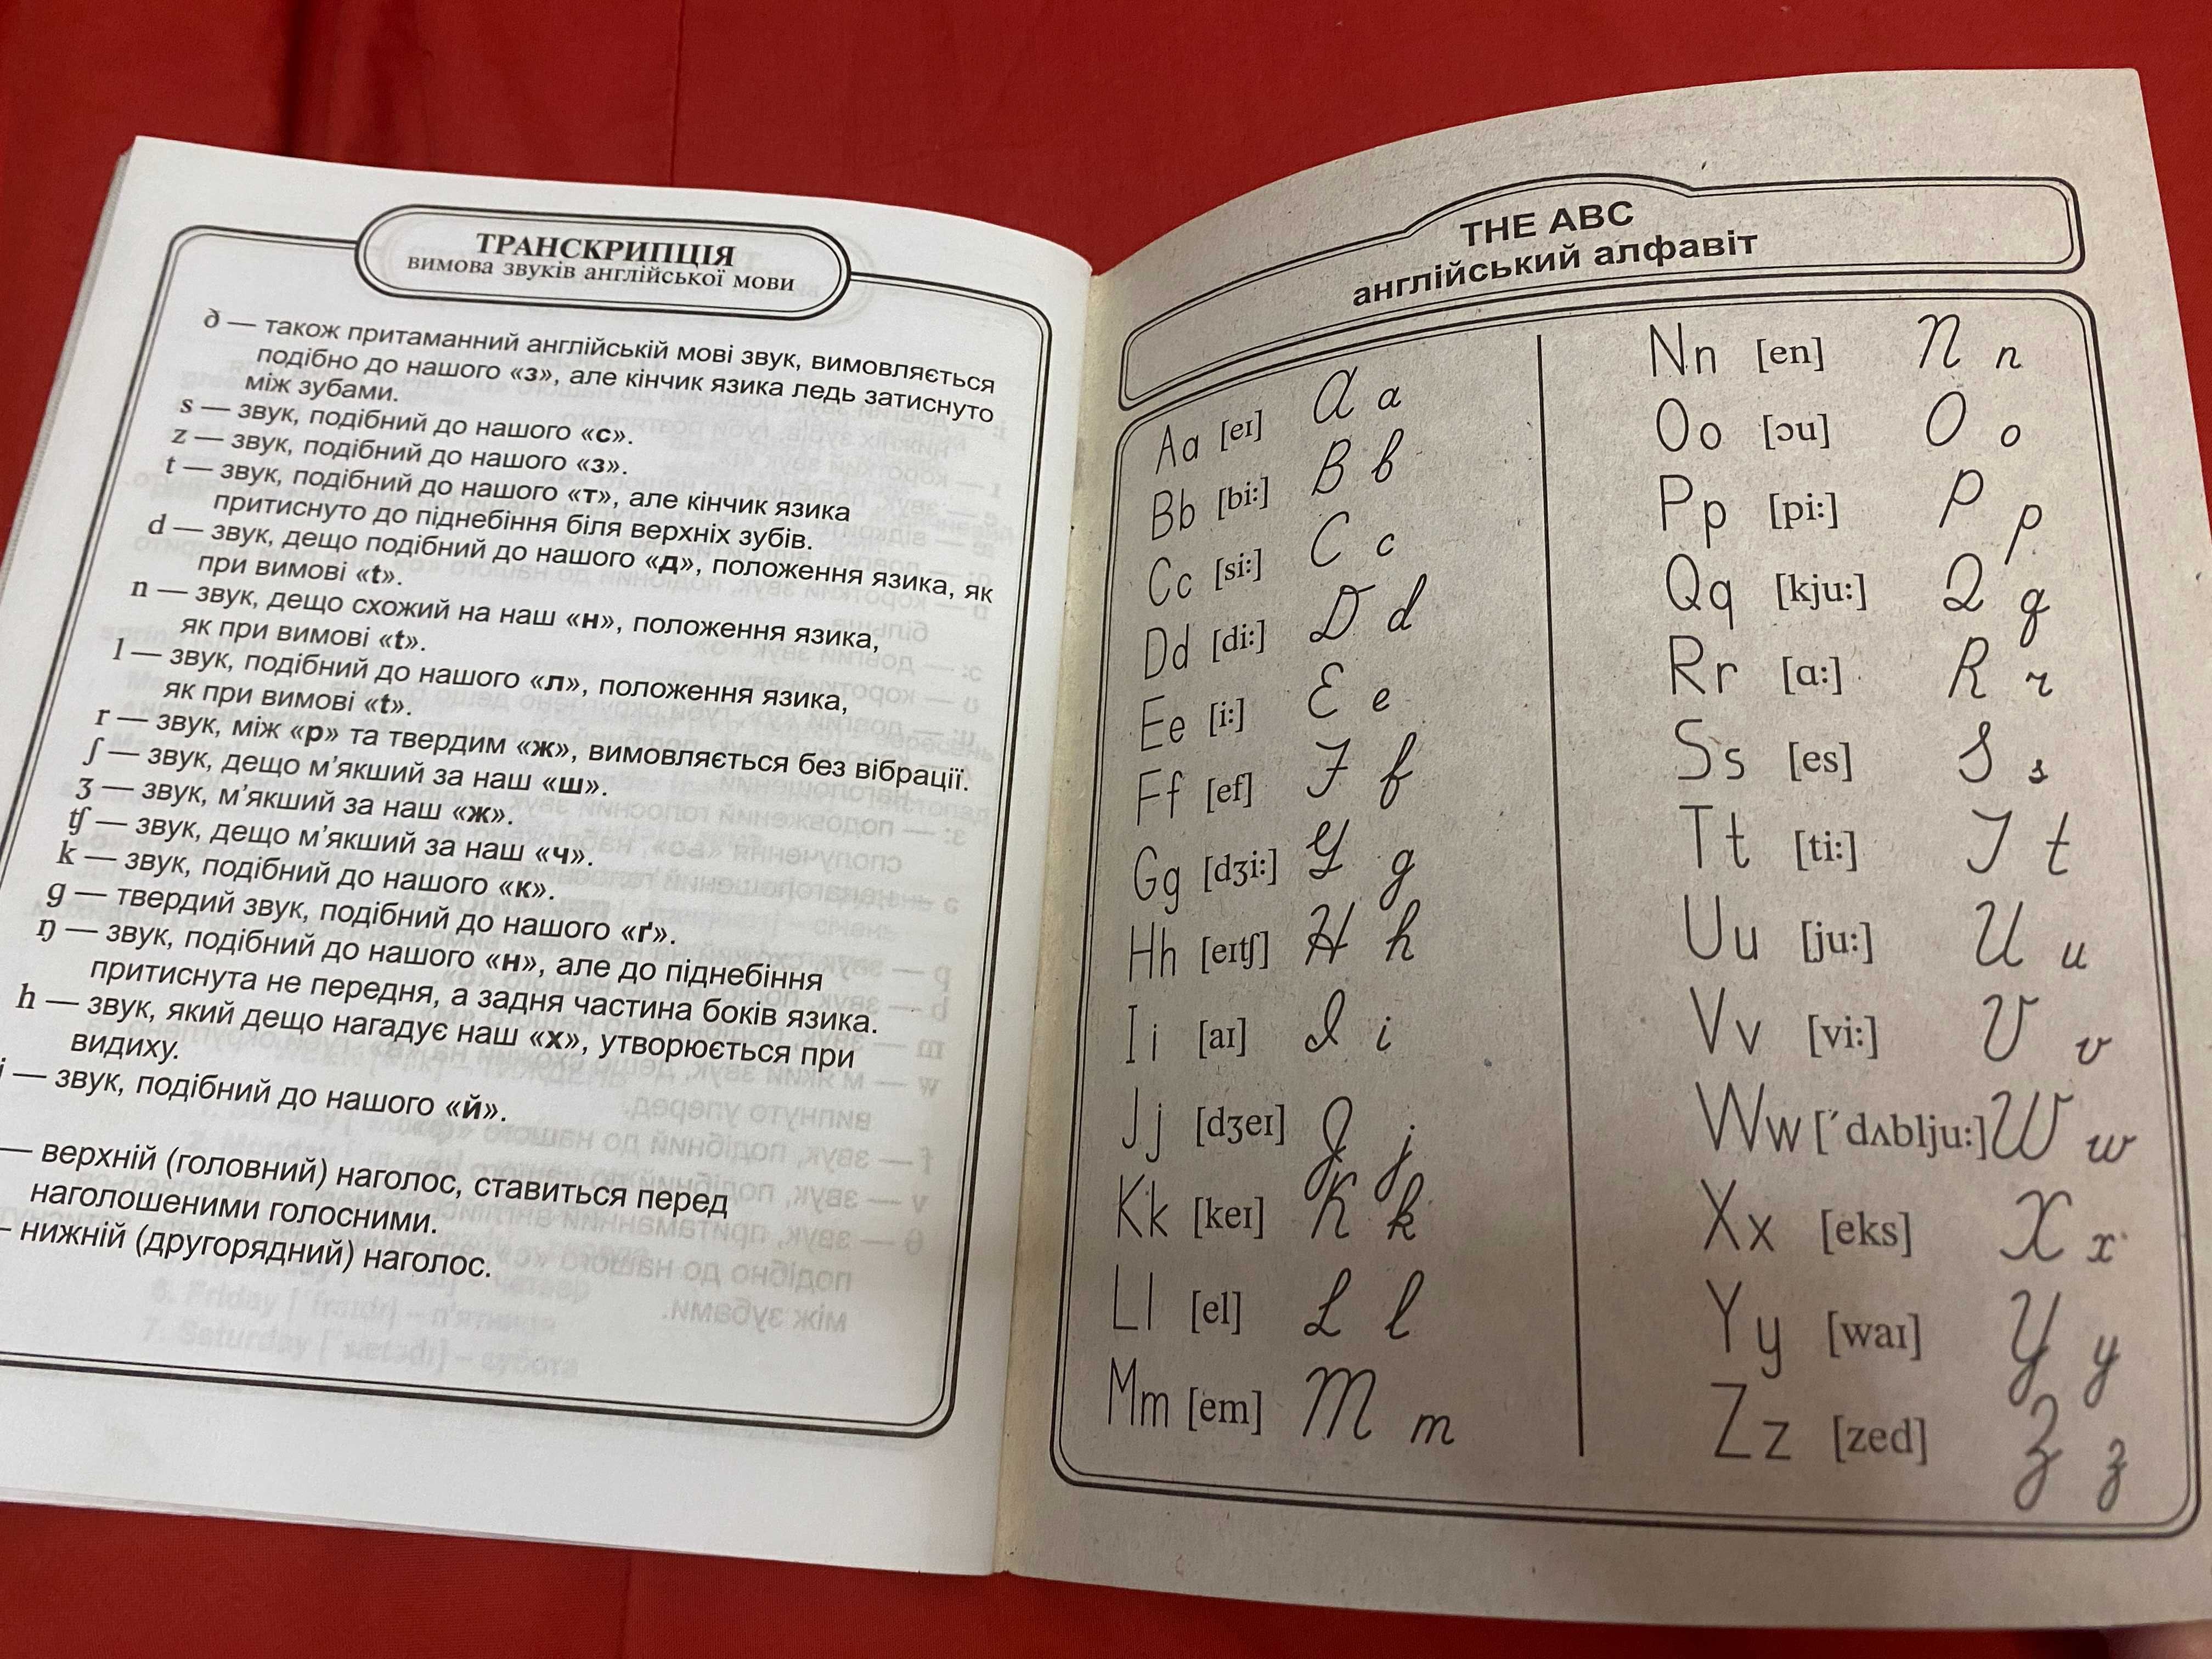 ТРАНСКРИПЦІЯ
вимова звуків англійської мови
ð — також притаманний англійській мові звук, вимовляється
подібно до нашого «з», але кінчик язика ледь затиснуто
між зубами.
s — звук, подібний до нашого «с».
z — звук, подібний до нашого «з».
t — звук, подібний до нашого «т», але кінчик язика
притиснуто до піднебіння біля верхніх зубів.
d — звук, дещо подібний до нашого «д», положення язика, як
при вимові «t».
n — звук, дещо схожий на наш «н», положення язика,
як при вимові «t».
l — звук, подібний до нашого «л», положення язика,
як при вимові «t».
r — звук, між «р» та твердим «ж», вимовляється без вібрації.
ʃ — звук, дещо м'якший за наш «ш».
ʒ — звук, м'якший за наш «ж».
ʧ — звук, дещо м'якший за наш «ч».
k — звук, подібний до нашого «к».
g — твердий звук, подібний до нашого «ґ».
ŋ — звук, подібний до нашого «н», але до піднебіння
притиснута не передня, а задня частина боків язика.
h — звук, який дещо нагадує наш «х», утворюється при
видиху.
j — звук, подібний до нашого «й».
— верхній (головний) наголос, ставиться перед
наголошеними голосними.
— нижній (другорядний) наголос.
THE ABC
англійський алфавіт
Aa [eɪ] A a
Bb [bi:] B b
Cc [si:] C c
Dd [di:] D d
Ee [i:] E e
Ff [ef] F f
Gg [dʒi:] G g
Hh [eɪʧ] H h
Ii [aɪ] I i
Jj [dʒeɪ] J j
Kk [keɪ] K k
Ll [el] L l
Mm [em] M m
Nn [en] N n
Oo [ɔu] O o
Pp [pi:] P p
Qq [kju:] Q q
Rr [ɑ:] R r
Ss [es] S s
Tt [ti:] T t
Uu [ju:] U u
Vv [vi:] V v
Ww [ˊdʌblju:] W w
Xx [eks] X x
Yy [waɪ] Y y
Zz [zed] Z z